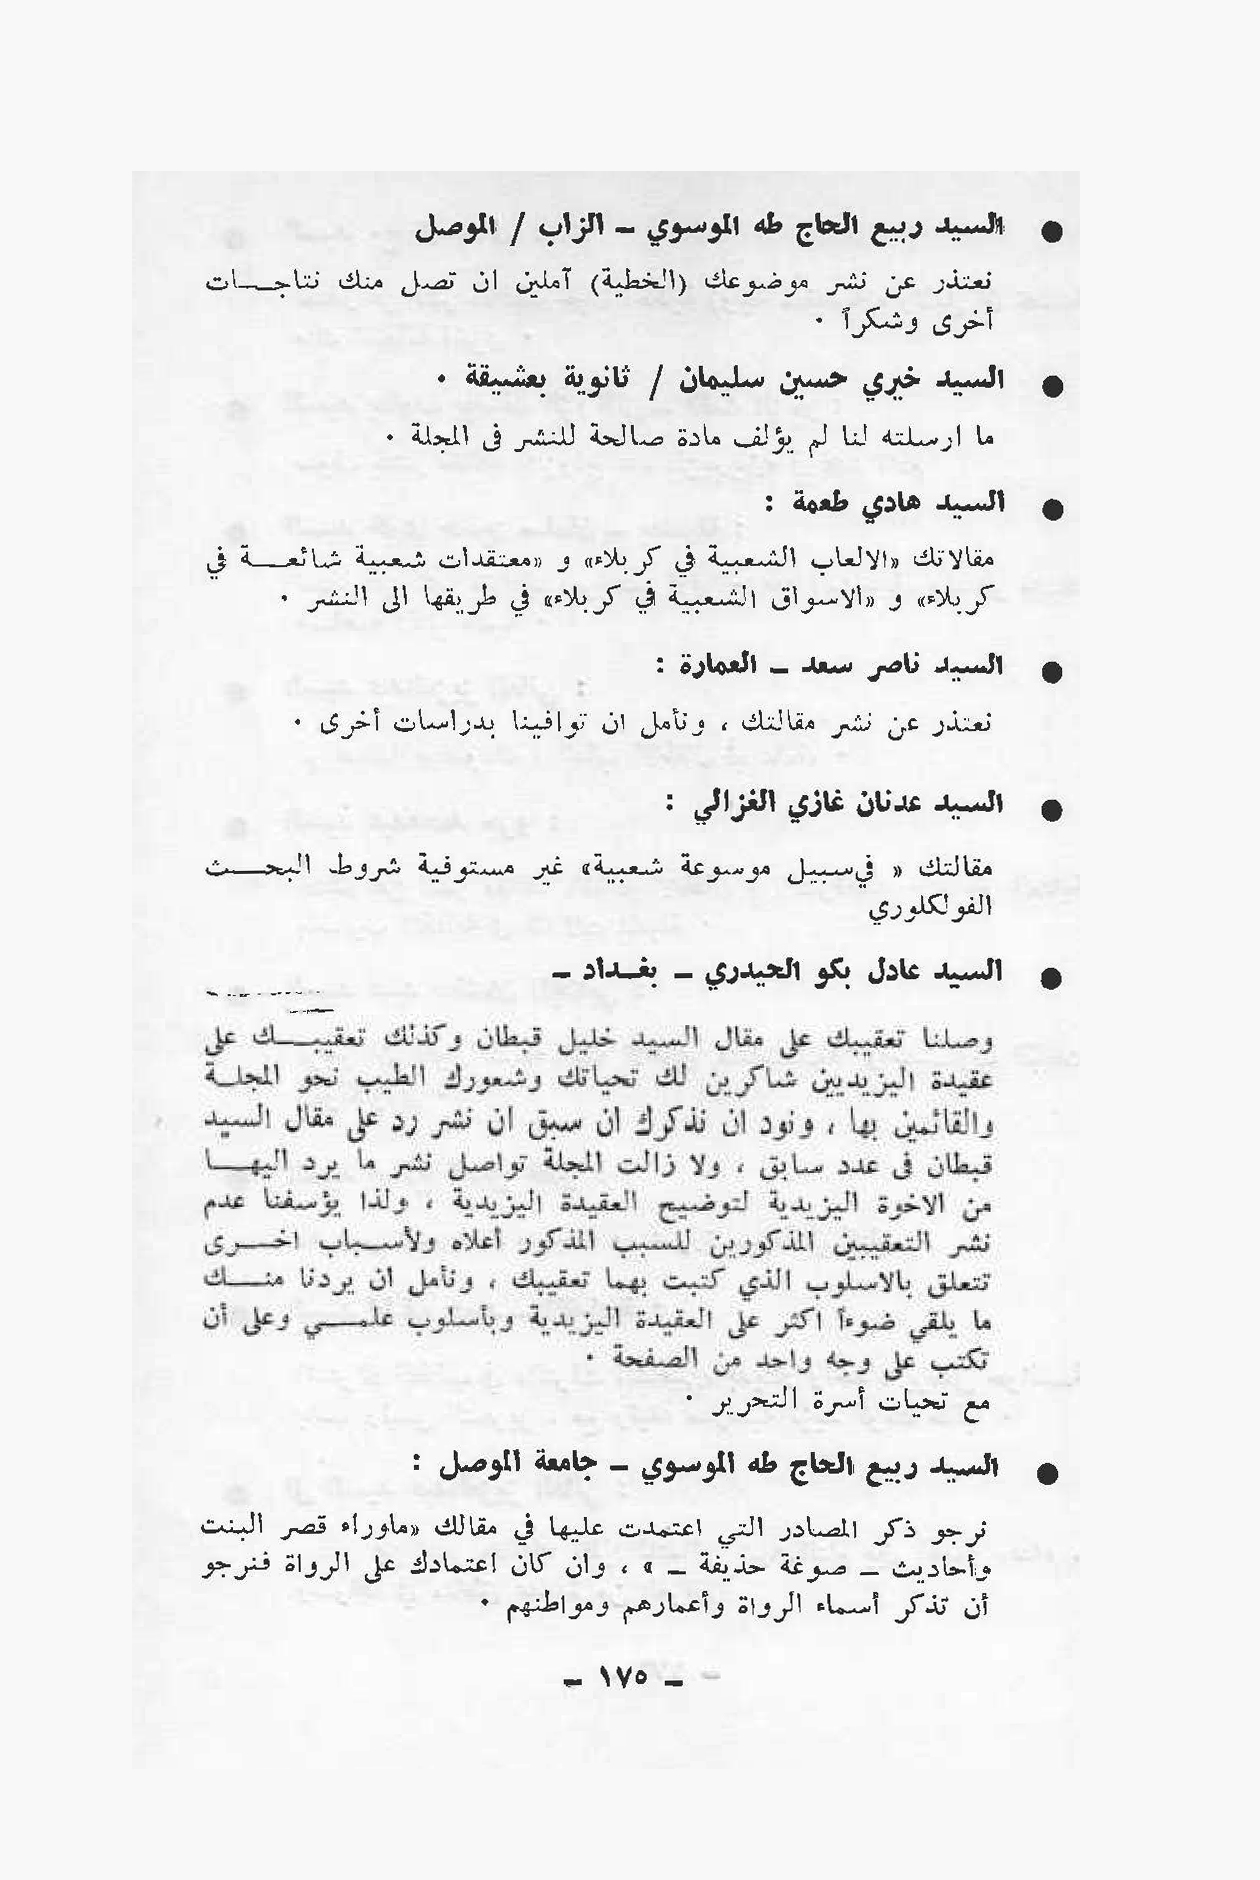 ● السيد ربيع الحاج طه الموسوي ـ الزاب / الموصل
نعتذر عن نشر موضوعك (الخطية) آملين ان تصل منك نتاجـــات
أخرى وشكراً ٠
● السيد خيري حسين سليمان / ثانوية بعشيقة ٠
ما ارسلته لنا لم يؤلف مادة صالحة للنشر فى المجلة ٠
● السيد هادي طعمة :
مقالاتك «الالعاب الشعبية في كربلاء» و «معتقدات شعبية شائعـــة في
كربلاء» و «الاسواق الشعبية في كربلاء» في طريقها الى النشر ٠
● السيد ناصر سعد ـ العمارة :
نعتذر عن نشر مقالتك ، ونأمل ان توافينا بدراسات أخرى ٠
● السيد عدنان غازي الغزالي :
مقالتك « في سبيل موسوعة شعبية» غير مستوفية شروط البحـــث
الفولكلوري
● السيد عادل بكو الحيدري ـ بغــداد ـ
وصلنا تعقيبك على مقال السيد خليل قبطان وكذلك تعقيبـــك على
عقيدة اليزيديين شاكرين لك تحياتك وشعورك الطيب نحو المجلــة
والقائمين بها ، ونود ان نذكرك ان سبق ان نشر رد على مقال السيد
قبطان فى عدد سابق ، ولا زالت المجلة تواصل نشر ما يرد اليهـــا
من الاخوة اليزيدية لتوضيح العقيدة اليزيدية ، ولذا يؤسفنا عدم
نشر التعقيبين المذكورين للسبب المذكور أعلاه ولأسبــاب اخـــرى
تتعلق بالاسلوب الذي كتبت بهما تعقيبك ، ونأمل ان يردنا منـــك
ما يلقي ضوءاً اكثر على العقيدة اليزيدية وبأسلوب علمـــي وعلى أن
تكتب على وجه واحد من الصفحة ٠
مع تحيات أسرة التحرير ٠
● السيد ربيع الحاج طه الموسوي ـ جامعة الموصل :
نرجو ذكر المصادر التي اعتمدت عليها في مقالك «ماوراء قصر البنت
وأحاديث ـ صوغة حذيفة ـ » ، وان كان اعتمادك على الرواة فنرجو
أن تذكر أسماء الرواة وأعمارهم ومواطنهم ٠
ـ ١٧٥ ـ